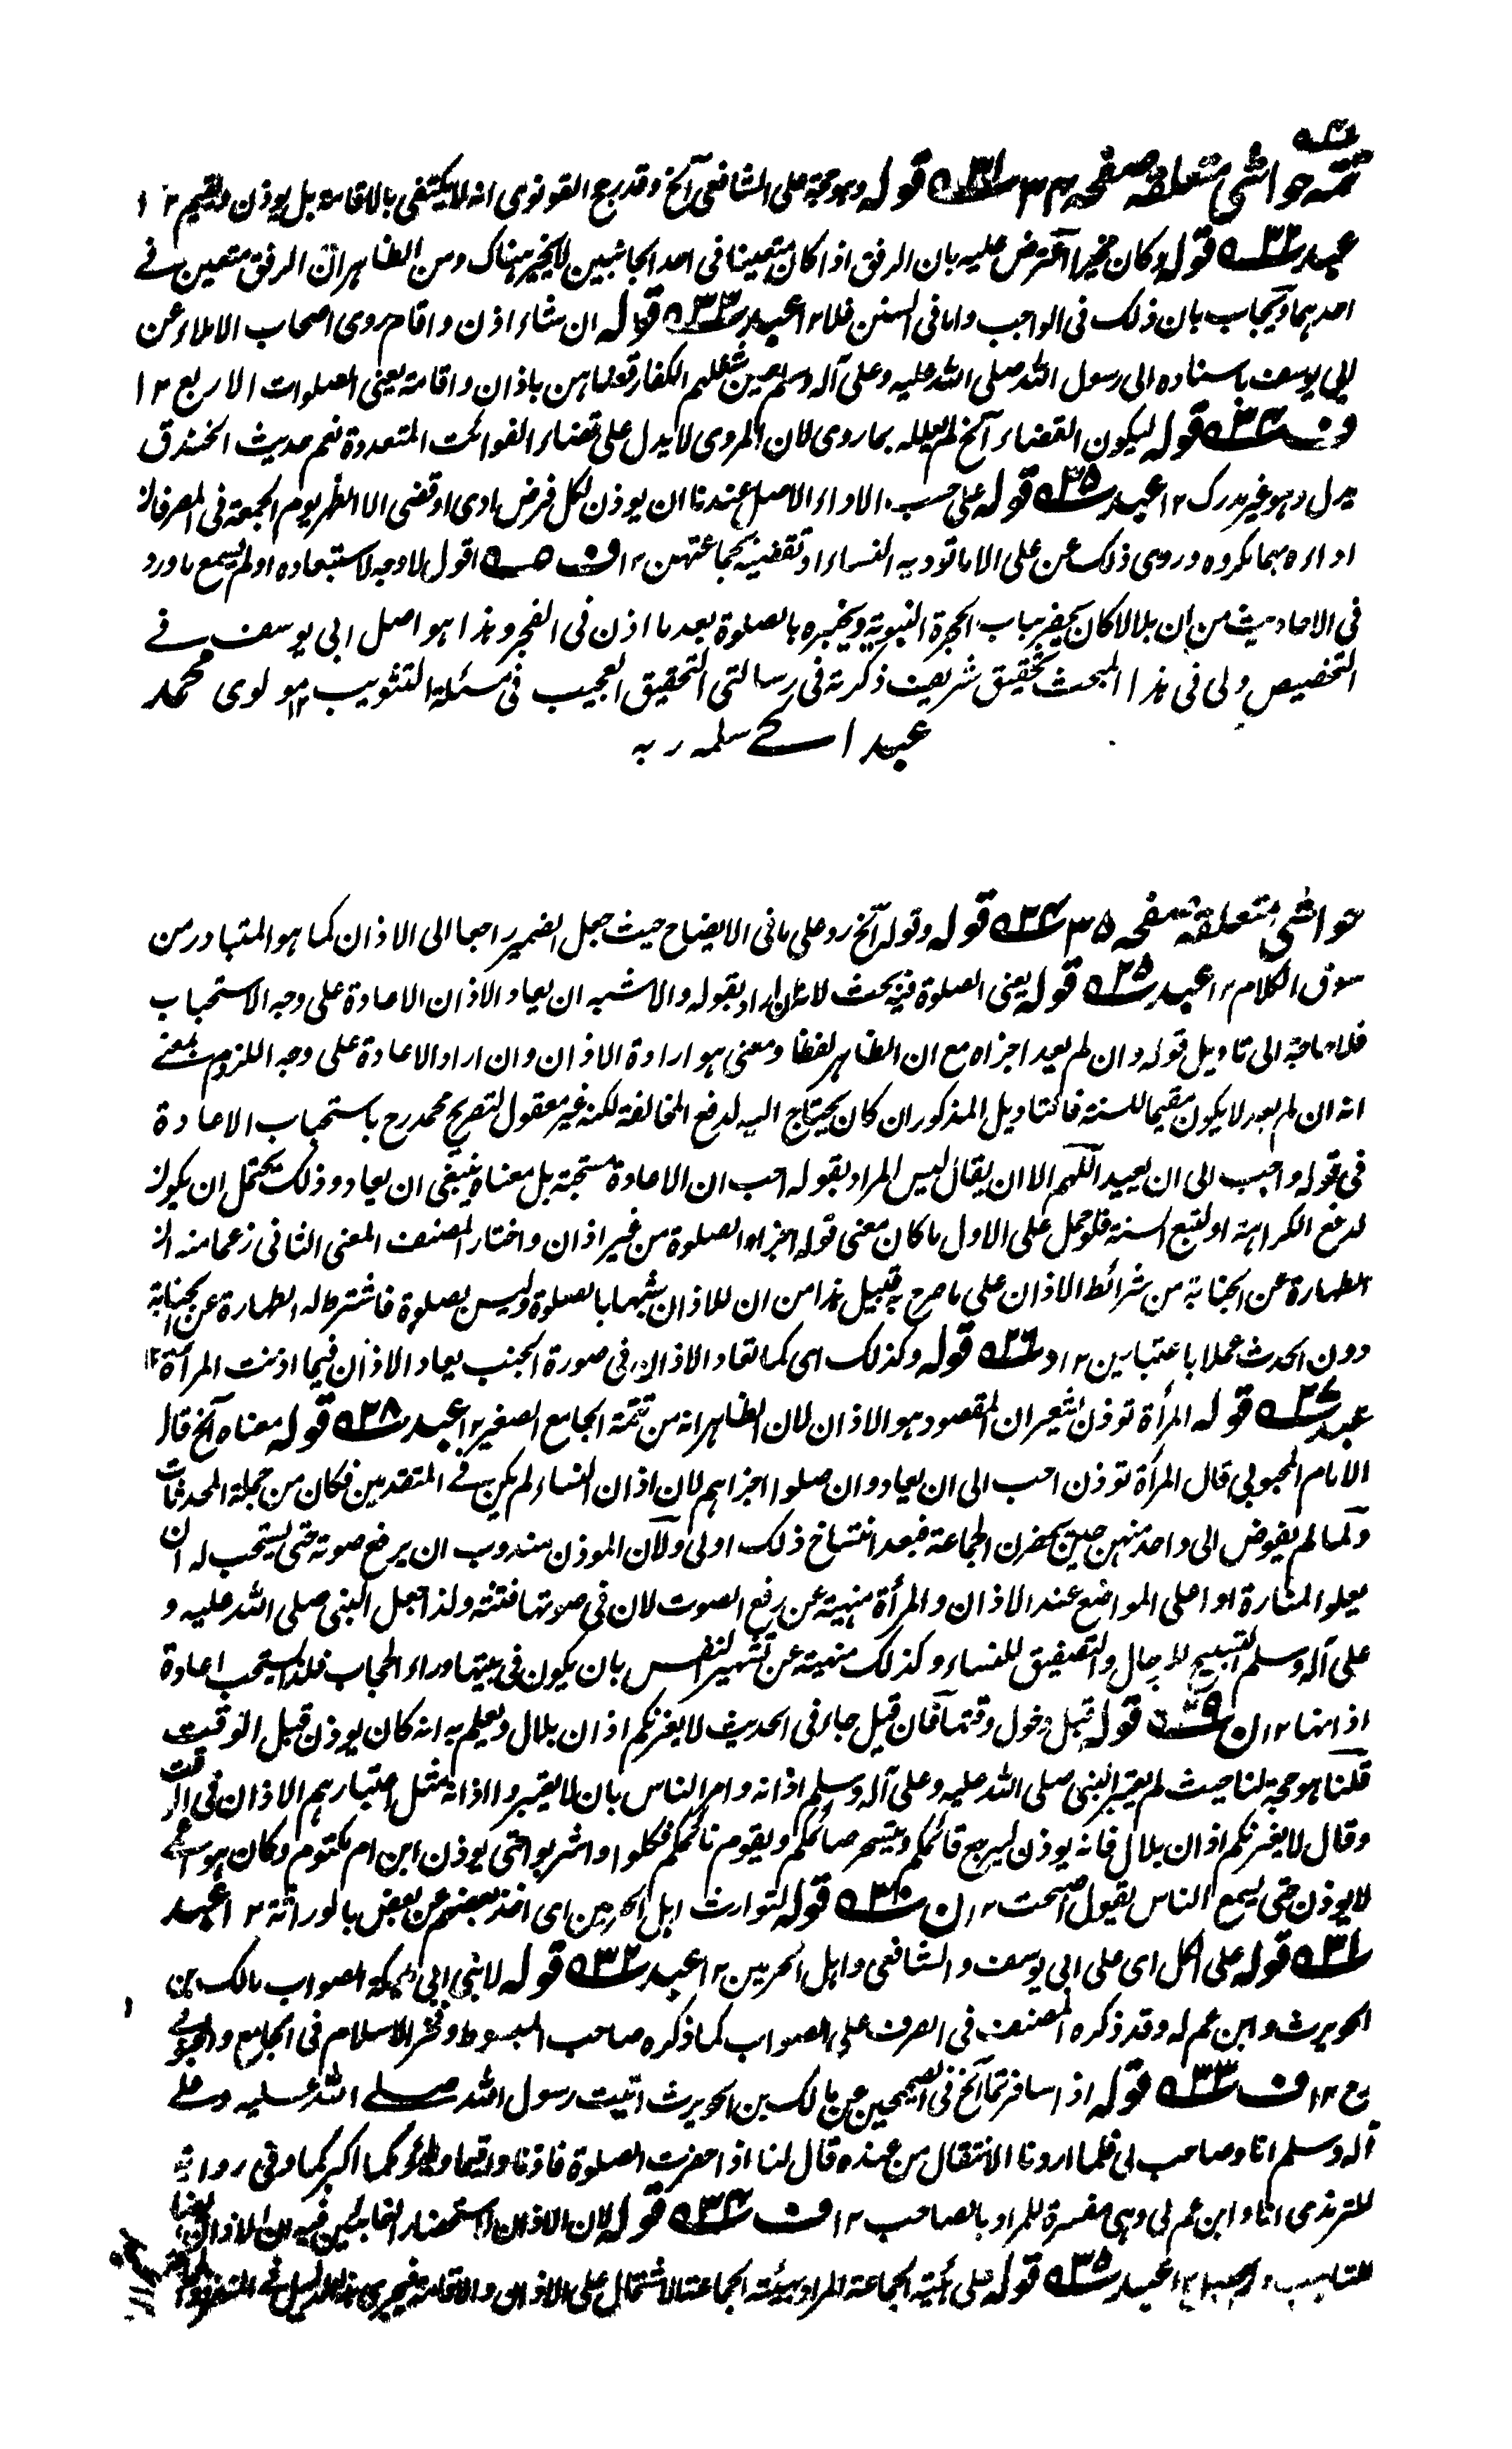 تتمة حواشي متعلقة صفحه ٣٤ ٣١ه قوله وهو حجة على الشافعي آلخ وقد رجح القونوى انه لا يكتفى بالاقامة بل يوذن ويقيم ١٢
عبد ٣٢ه قوله وكان مخيرا اعترض عليه بان الرفق اذا كان متعينا فى احد الجانبين لا يخير هناك ومن الظاهر ان الرفق متعين فى
احدهما ويجاب بان ذلك فى الواجب واما فى السنن فلا ١٢ عبد ٣٣ه قوله ان شاء اذن واقام روى اصحاب الاملاء عن
ابى يوسف باسناده الى رسول الله صلى الله عليه وعلى آله وسلم حين شغلهم الكفار قضاهن باذان واقامة يعنى الصلوات الاربع ١٢
ف ٣٤ه قوله ليكون القضاء آلخ لم يعلله بما روى لان المروى لا يدل على قضاء الفوائت المتعددة نعم حديث الخندق
يدل وهو غير مدرك ١٢ عبد ٣٥ه قوله على حسب الاداء الاصل عندنا ان يوذن لكل فرض ادى او قضى الا الظهر يوم الجمعة فى المصر فان
اداءه بهما مكروه وروى ذلك عن على الا ما توديه النساء او تقضينه بجماعتهن ١٢ ف اقول لا وجه لاستبعاده او لم يسمع ما ورد
فى الاحاديث من ان بلالا كان يحضر بباب الحجرة النبوية ويخبره بالصلوة بعد ما اذن فى الفجر وهذا هو اصل ابى يوسف فى
التخصيص ولى فى هذا المبحث تحقيق شريف ذكرته فى رسالتى التحقيق العجيب فى مسئلة التثويب ١٢ مولوى محمد
عبد الحى سلمه ربه
حواشي متعلقة صفحه ٣٥ ٢٤ه قوله وقوله آلخ رد على ما فى الايضاح حيث جعل الضمير راجعا الى الاذان كما هو المتبادر من
سوق الكلام ١٢ عبد ٢٥ه قوله يعنى الصلوة فيه بحث لانه ان اراد بقوله والاشبه ان يعاد الاذان الاعادة على وجه الاستحباب
فلا حاجة الى تاويل قوله وان لم يعد اجزاه مع ان الظاهر لفظا ومعنى هو ارادة الاذان وان اراد الاعادة على وجه اللزوم بمعنى
انه ان لم يعد لا يكون مقيما للسنة فالتاويل المذكور ان كان يحتاج اليه لدفع المخالفة لكنه غير معقول لتصريح محمد رح باستحباب الاعادة
فى قوله واحب الى ان يعيد اللهم الا ان يقال ليس المراد بقوله احب ان الاعادة مستحبة بل معناه ينبغى ان يعاد وذلك يحتمل ان يكون
لدفع الكراهة او لتبع السنة فلو حمل على الاول ما كان معنى قوله اجزاه الصلوة من غير اذان واختار المصنف المعنى الثانى زعما منه ان
الطهارة عن الجنابة من شرائط الاذان على ما صرح به قبيل هذا من ان للاذان شبها بالصلوة وليس بصلوة فاشترط له الطهارة عن الجنابة
دون الحدث عملا باعتبارين ١٢ د ٢٦ه قوله وكذلك اى كما تعاد الاذان فى صورة الجنب يعاد الاذان فيما اذنت المرأة ١٢
عبد ٢٧ه قوله المرأة توذن اشعر ان المقصود هو الاذان لان الظاهر انه من تتمة الجامع الصغير ١٢ عبد ٢٨ه قوله معناه آلخ قال
الامام المحبوبى قال المرأة توذن احب الى ان يعاد وان صلوا اجزاهم لان اذان النساء لم يكن فى المتقدمين فكان من جملة المحدثات
ولما لم يفوض الى واحد منهن حين يحضرن الجماعة فبعد انتساخ ذلك اولى ولان الموذن مندوب ان يرفع صوته حتى يستحب له ان
يعلو المنارة او اعلى المواضع عند الاذان والمرأة منهية عن رفع الصوت لان فى صوتها فتنة ولذا جعل النبى صلى الله عليه و
على آله وسلم التسبيح للرجال والتصفيق للنساء وكذلك منهية عن تشهير النفس بان يكون فى بيتها وراء الحجاب فلذا يستحب اعادة
اذانها ١٢ ن ٢٩ه قوله قبل دخول وقتها فان قيل جاء فى الحديث لا يغرنكم اذان بلال ويعلم به انه كان يوذن قبل الوقت
قلنا هو حجة لنا حيث لم يعتبر النبى صلى الله عليه وعلى آله وسلم اذانه وامر الناس بان لا يعتبروا اذانه مثل اعتبارهم الاذان فى الوقت
وقال لا يغرنكم اذان بلال فانه يوذن ليرجع قائمكم ويتسحر صائمكم ويقوم نائمكم فكلوا واشربوا حتى يوذن ابن ام مكتوم وكان هو اعمى
لا يوذن حتى يسمع الناس يقول اصبحت ١٢ ن ٣٠ه قوله لتوارث اهل الحرمين اى اخذ بعضهم عن بعض بالوراثة ١٢ عبد
٣١ه قوله على الكل اى على ابى يوسف والشافعى واهل الحرمين ١٢ عبد ٣٢ه قوله لابنى ابى مليكة الصواب مالك بن
الحويرث وابن عم له وقد ذكره المصنف فى الصرف على الصواب كما ذكره صاحب المبسوط وفخر الاسلام فى الجامع والمحبوبى
رح ١٢ ف ٣٣ه قوله اذا سافرتما آلخ فى الصحيحين عن مالك بن الحويرث اتيت رسول الله صلى الله عليه وعلى
آله وسلم انا وصاحب لى فلما اردنا الانتقال من عنده قال لنا اذا حضرت الصلوة فاذنا واقيما وليؤمكما اكبركما وفى رواية
للترمذى انا وابن عم لى وهى مفسرة للمراد بالصاحب ١٢ ف ٣٤ه قوله لان الاذان لاستحضار الغائبين فيه ان الاذان
١٢ عبد ٣٥ه قوله على هيئة الجماعة المراد بهيئة الجماعة الاشتمال على الاذان والاقامة